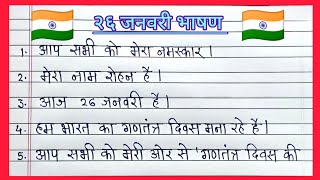 २६ जनवरी भाषण
1. आप सभी को मेरा नमस्कार।
2. मेरा नाम रोहन है।
3. आज 26 जनवरी है।
4. हम भारत का गणतंत्र दिवस मना रहे हैं।
5. आप सभी को मेरी ओर से 'गणतंत्र दिवस की